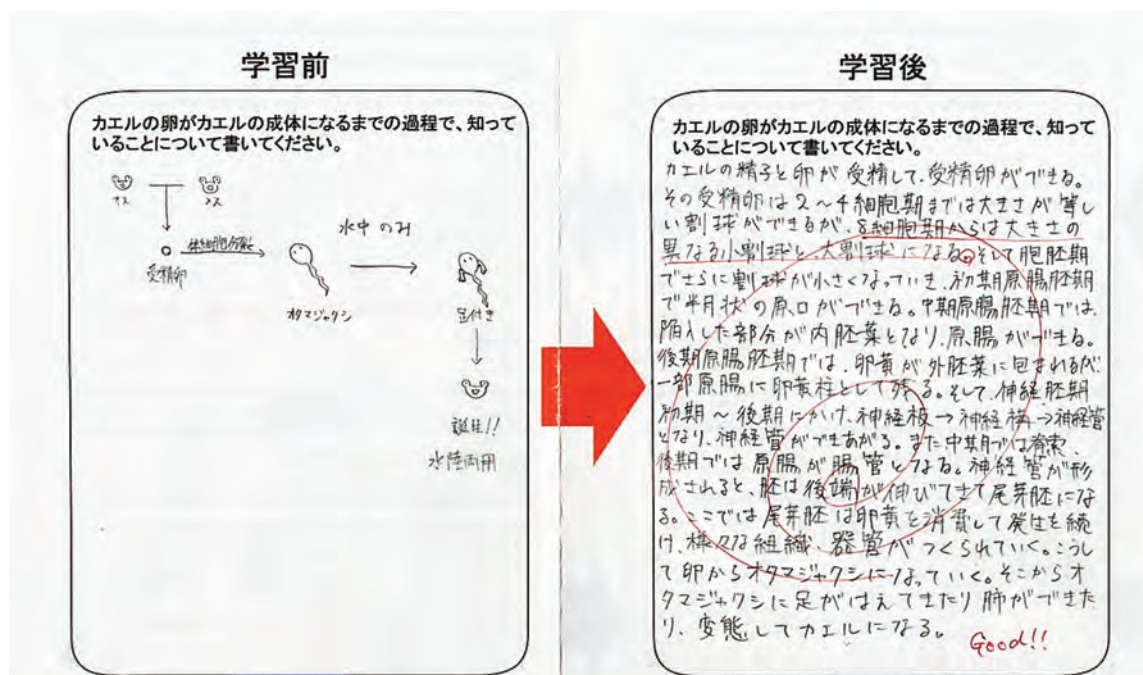 学習前
カエルの卵がカエルの成体になるまでの過程で、知って
いることについて書いてください。
オス
メス
受精卵
体細胞分裂
オタマジャクシ
水中のみ
足付き
誕生!!
水陸両用
学習後
カエルの卵がカエルの成体になるまでの過程で、知って
いることについて書いてください。
カエルの精子と卵が受精して、受精卵ができる。
その受精卵は2〜4細胞期までは大きさが等し
い割球ができるが、8細胞期からは大きさの
異なる小割球と、大割球になる。そして胞胚期
でさらに割球が小さくなっていき、初期原腸胚期
で半月状の原口ができる。中期原腸胚期では、
陥入した部分が内胚葉となり、原腸ができる。
後期原腸胚期では、卵黄が外胚葉に包まれるが、
一部原腸に卵黄栓として残る。そして、神経胚期
初期〜後期にかけ、神経板→神経溝→神経管
となり、神経管ができあがる。また中期では脊索、
後期では原腸が腸管となる。神経管が形
成されると、胚は後端が伸びてきて尾芽胚にな
る。ここでは尾芽胚は卵黄を消費して発生を続
け、様々な組織、器官がつくられていく。こうし
て卵からオタマジャクシになっていく。そこからオ
タマジャクシに足がはえてきたり肺ができた
り、変態してカエルになる。
Good!!